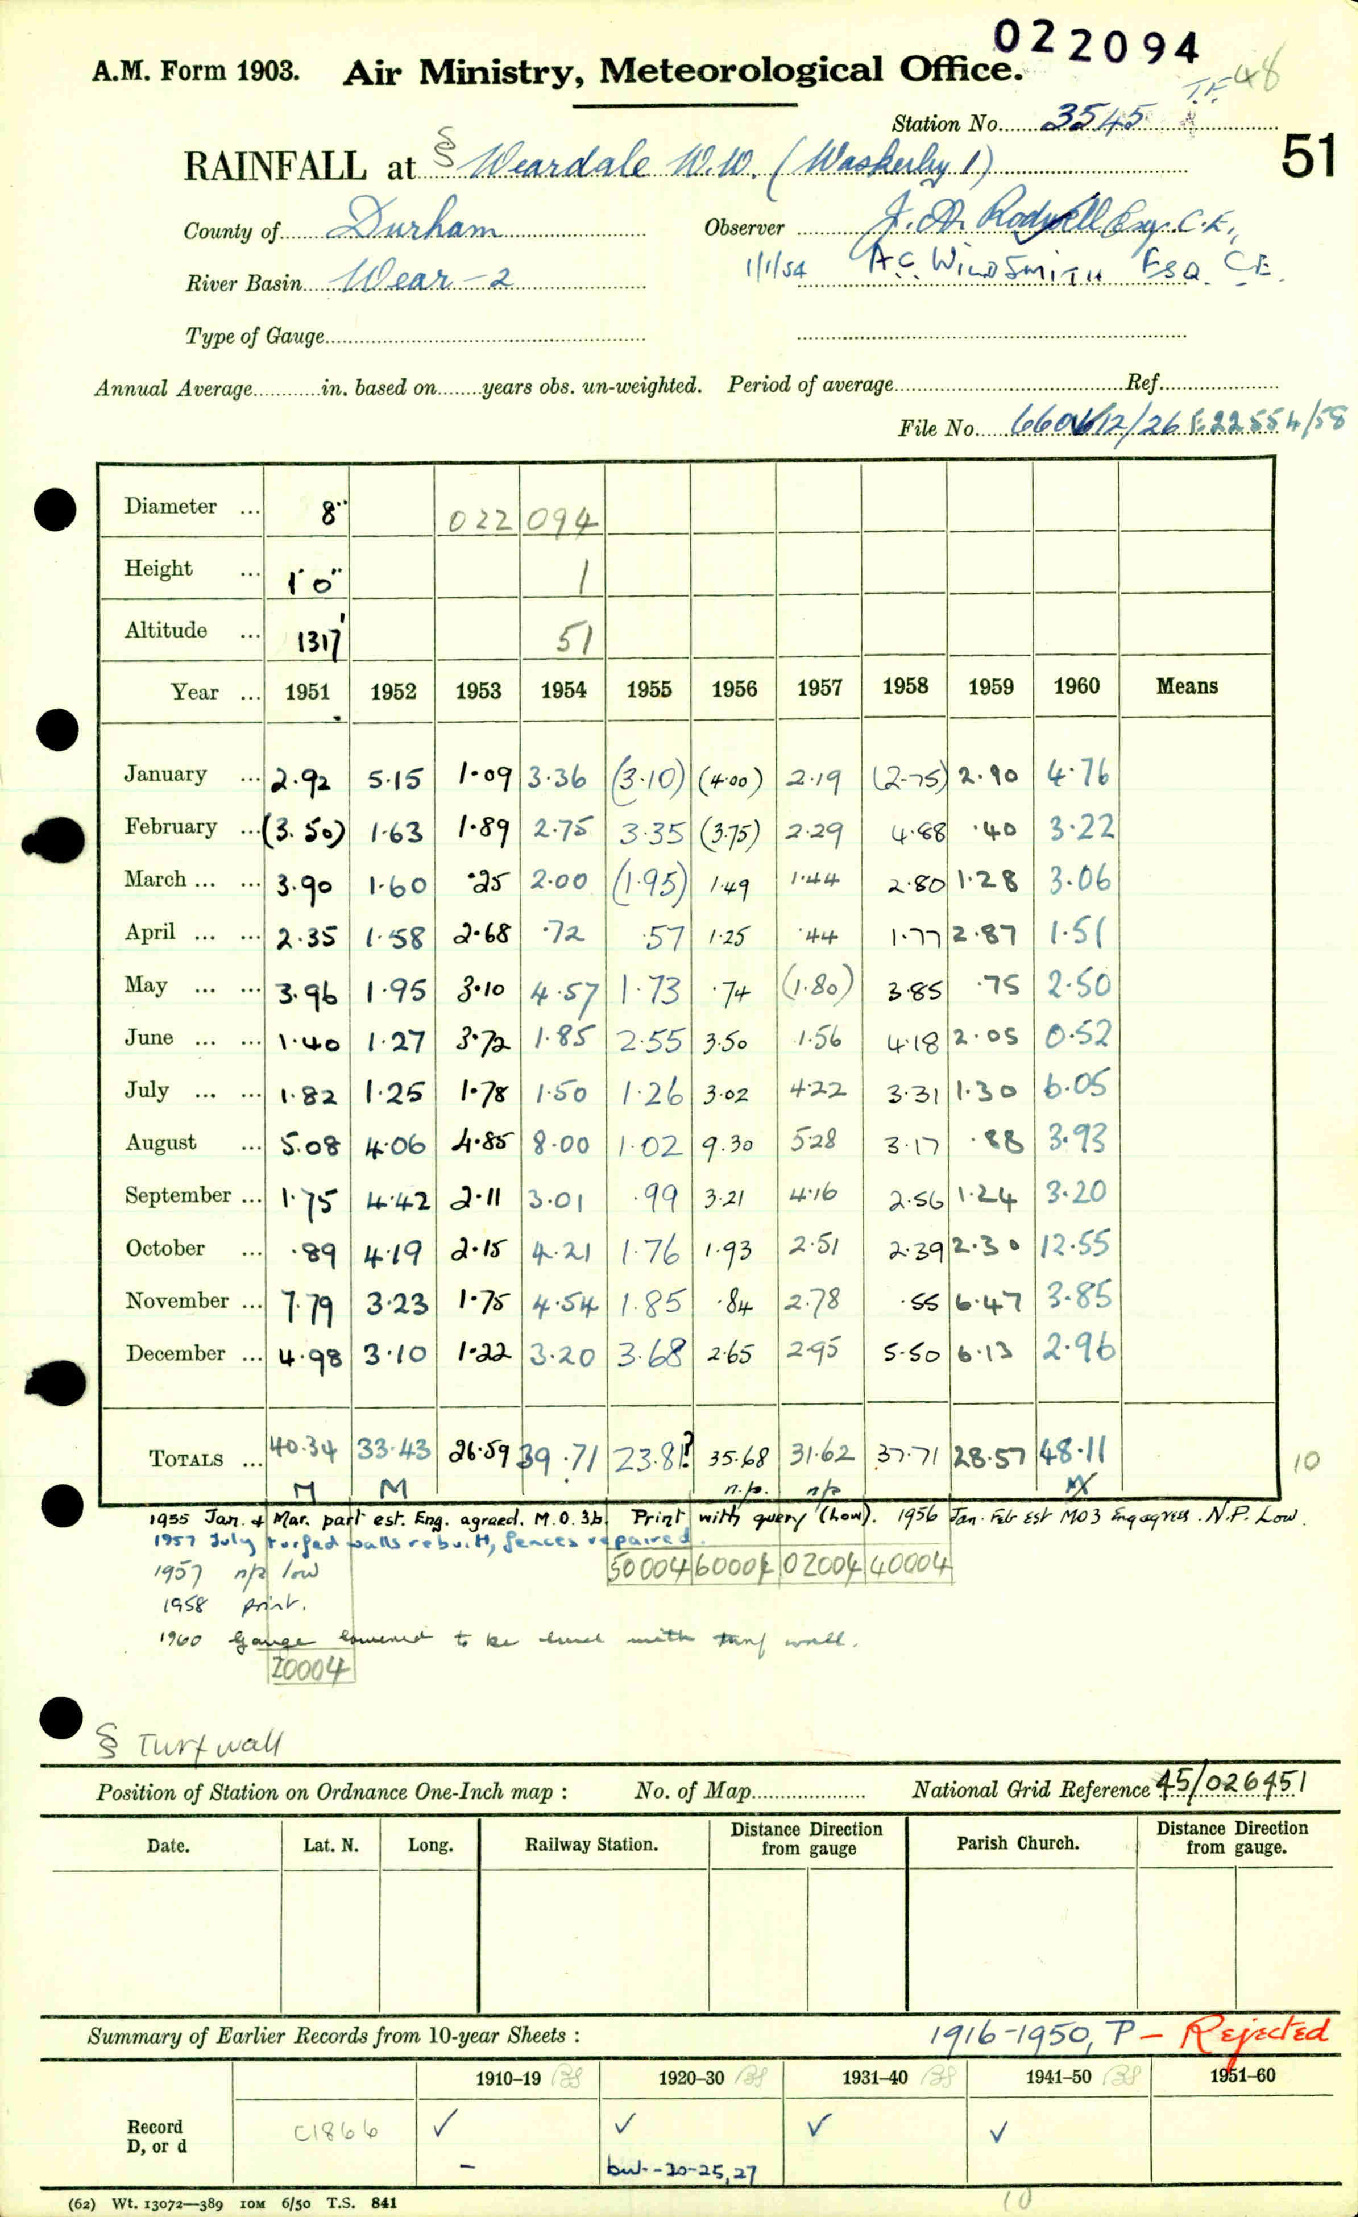 022094
A.M. Form 1903. Air Ministry, Meteorological Office. 48
T.F.
Station No. 3545
51
RAINFALL at § Weardale W.W. (Waskerley 1)
County of Durham Observer J. A. Rodwell Esq. C.E.,
1/1/54 A.C. WILDSMITH ESQ. C.E.
River Basin Wear-2
Type of Gauge
Annual Average in. based on years obs. un-weighted. Period of average Ref.
File No. 12/26 E22554/58
Diameter ... 8" 022 094
Height ... 1'0" 1
Altitude ... 1317' 51
Year ... 1951 1952 1953 1954 1955 1956 1957 1958 1959 1960 Means
January ... 2.92 5.15 1.09 3.36 (3.10) (4.00) 2.19 (2.75) 2.90 4.76
February ... (3.50) 1.63 1.89 2.75 3.35 (3.75) 2.29 4.88 .40 3.22
March ... ... 3.90 1.60 .25 2.00 (1.95) 1.49 1.44 2.80 1.28 3.06
April ... ... 2.35 1.58 2.68 .72 .57 1.25 .44 1.77 2.87 1.51
May ... ... 3.96 1.95 3.10 4.57 1.73 .74 (1.80) 3.85 .75 2.50
June ... ... 1.40 1.27 3.72 1.85 2.55 3.50 1.56 4.18 2.05 0.52
July ... ... 1.82 1.25 1.78 1.50 1.26 3.02 4.22 3.31 1.30 6.05
August ... 5.08 4.06 4.85 8.00 1.02 9.30 5.28 3.17 .88 3.93
September ... 1.75 4.42 2.11 3.01 .99 3.21 4.16 2.56 1.24 3.20
October ... .89 4.19 2.15 4.21 1.76 1.93 2.51 2.39 2.30 12.55
November ... 7.79 3.23 1.75 4.54 1.85 .84 2.78 .55 6.47 3.85
December ... 4.98 3.10 1.22 3.20 3.68 2.65 2.95 5.50 6.13 2.96
TOTALS ... 40.34 33.43 26.59 39.71 23.81? 35.68 31.62 37.71 28.57 48.11 10
M M n.p. n/p
1955 Jan. & Mar. part est. Eng. agreed. M.O.3b. Print with query (Low). 1956 Jan. Feb Est MO3 Eng agrees. N.P. Low.
1957 July turfed walls rebuilt, fences repaired.
1957 n/p low 50004 60004 02004 40004
1958 print.
1960 Gauge lowered to be level with turf wall.
20004
§ Turf wall
Position of Station on Ordnance One-Inch map : No. of Map National Grid Reference 45/026451
Date. Lat. N. Long. Railway Station. Distance Direction from gauge Parish Church. Distance Direction from gauge.
Summary of Earlier Records from 10-year Sheets : 1916-1950, P - Rejected
1910–19 1920–30 1931–40 1941–50 1951–60
Record D, or d C1866 ✓ ✓ ✓ ✓
– but -20-25, 27
(62) Wt. 13072—389 10M 6/50 T.S. 841 10